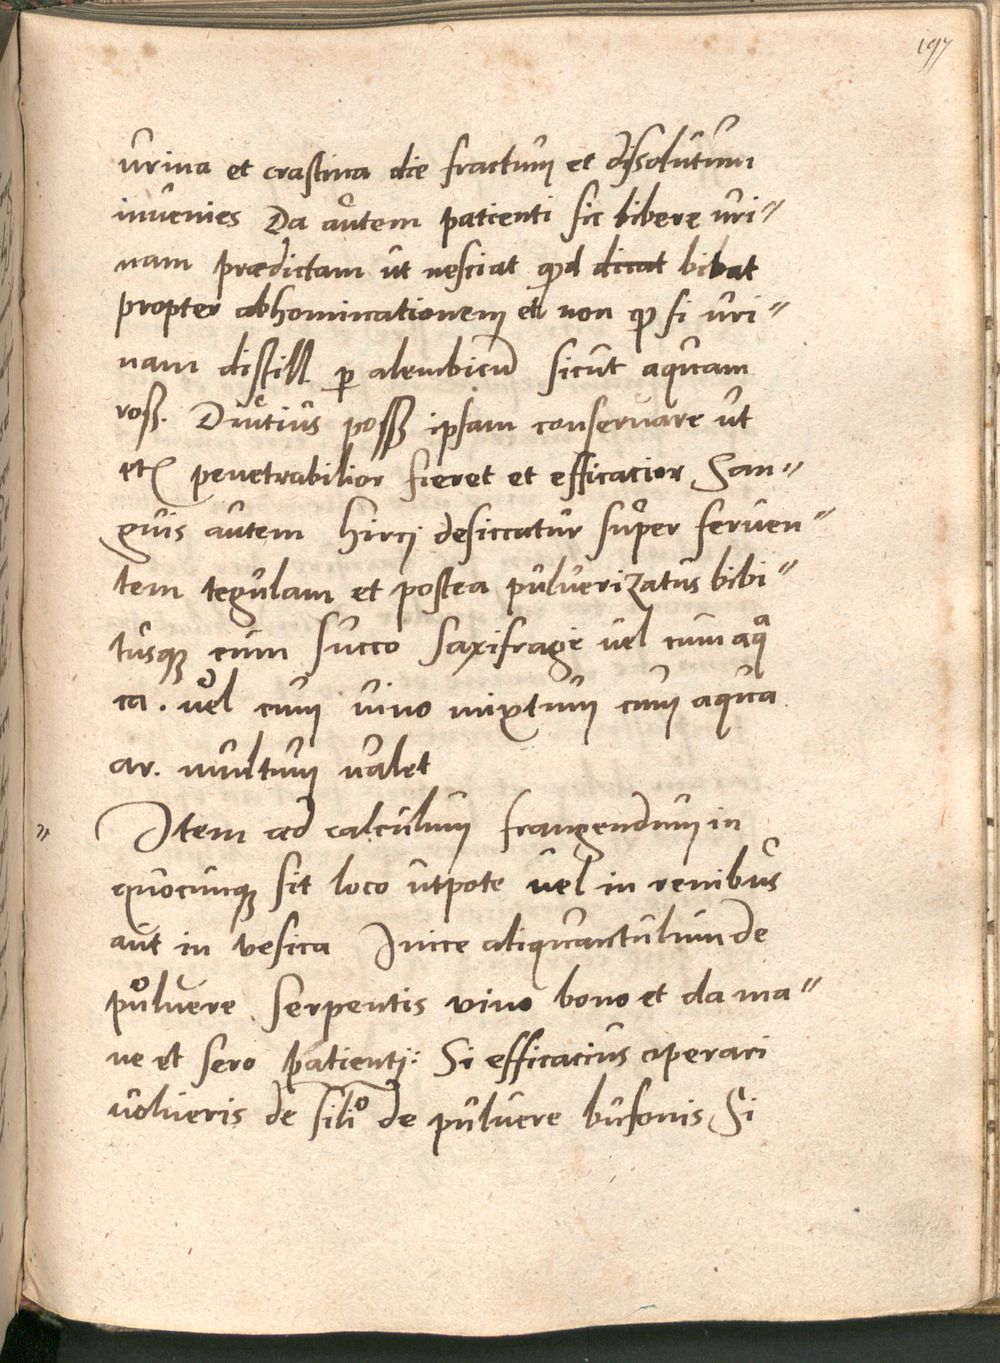 197
vrina et crastina die fractum et disolutum
invenies Da autem patienti sic bibere vri〃
nam prædictam ut nesciat quod dicat bibat
propter abhominationem et non quod si vri〃
nam distill per alembicum sicut aquam
roß. Diutius posß ipsam conservare ut
etc penetrabilior fieret et efficacior San〃
guis autem hircj desiccatur super ferven〃
tem tegulam et postea pulverizatus bibi〃
tusque cum succo saxifrage vel cum aqua
ca. vel cum vino mixtum cum aqua
ar. multum valet
〃 Item ad calculum frangendum in
quocunque sit loco utpote vel in renibus
aut in vesica Inice aliquantulum de
pulvere serpentis vino bono et da ma〃
ne et sero patientij: Si efficacius operari
volueris de silio de pulvere bufonis Si